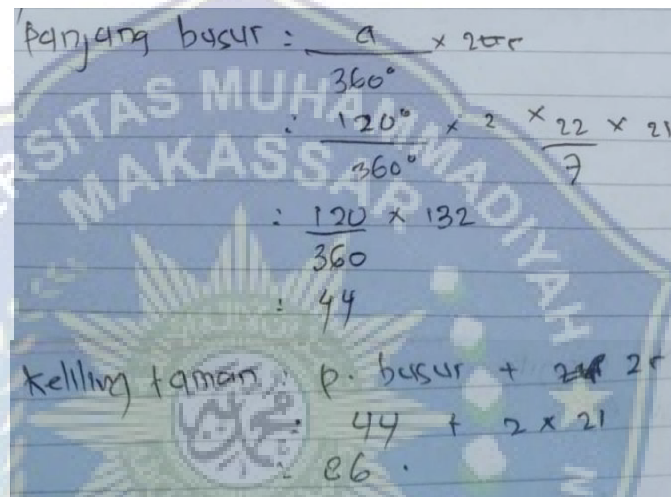 Panjang busur : a/360° × 2πr
: 120°/360° × 2 × 22/7 × 21
: 120/360 × 132
: 44
Keliling taman : p. busur + 2r
: 44 + 2 × 21
: 86 .
UNIVERSITAS MUHAMMADIYAH
MAKASSAR